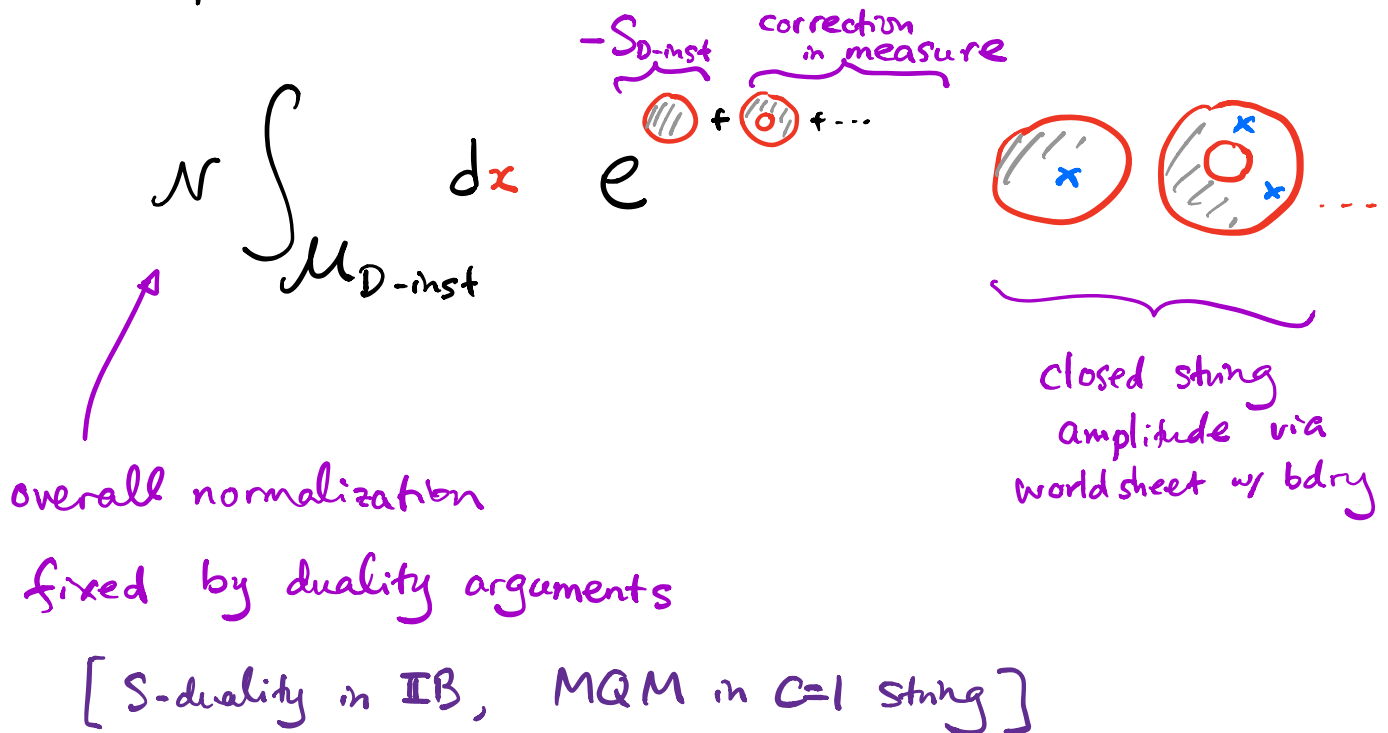 -S_{D-inst} correction in measure
N ∫_{M_{D-inst}} dx e^{+ + ...} ....
closed string
amplitude via
worldsheet w/ bdry
overall normalization
fixed by duality arguments
[ S-duality in IIB, MQM in C=1 string ]